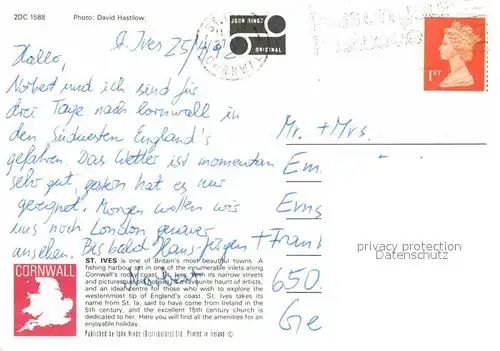 2DC 1588 Photo: David Hastilow.
St. Ives 25/4/92
JOHN HINDE
ORIGINAL
CORNWALL
1ST
Hallo,
Norbert und ich sind für
drei Tage nach Cornwall in
den Südwesten England's
gefahren. Das Wetter ist momentan
sehr gut, gestern hat es nur
geregnet. Morgen wollen wir
uns noch London genauer
ansehen. Bis bald Hans-Jürgen +
Mr. + Mrs.
Em
Erns
650
Ge
privacy protection
Datenschutz
CORNWALL
ST. IVES is one of Britain's most beautiful towns. A
fishing harbour set in one of the innumerable inlets along
Cornwall's rocky coast, St. Ives, with its narrow streets
and picturesque old houses, is a favourite haunt of artists,
and an ideal centre for those who wish to explore the
westernmost tip of England's coast. St. Ives takes its
name from St. Ia, said to have come from Ireland in the
5th century, and the excellent 15th century church is
dedicated to her. Here you will find all the amenities for an
enjoyable holiday.
Published by John Hinde (Distributors) Ltd. Printed in Ireland ©